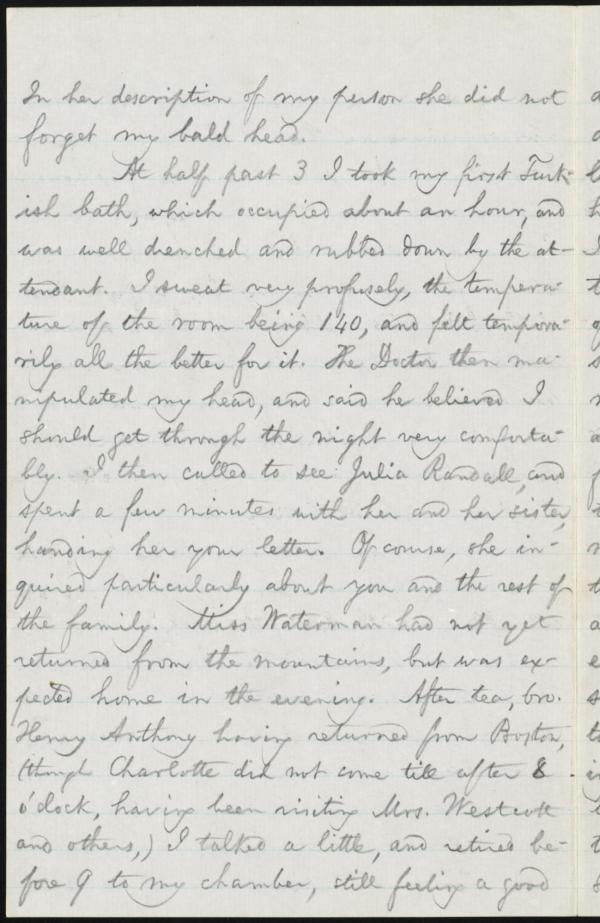 In her description of my person she did not
forget my bald head.
At half past 3 I took my first Turk-
ish bath, which occupied about an hour, and
was well drenched and rubbed down by the at-
tendant. I sweat very profusely, the tempera-
ture of the room being 140, and felt tempora-
rily all the better for it. The Doctor then ma-
nipulated my head, and said he believed I
should get through the night very comforta-
bly. I then called to see Julia Randall, and
spent a few minutes with her and her sister,
handing her your letter. Of course, she in-
quired particularly about you and the rest of
the family. Miss Waterman had not yet
returned from the mountains, but was ex-
pected home in the evening. After tea, bro.
Henry Anthony having returned from Boston,
(though Charlotte did not come till after 8
o'clock, having been visiting Mrs. Westcott
and others,) I talked a little, and retired be-
fore 9 to my chamber, still feeling a good